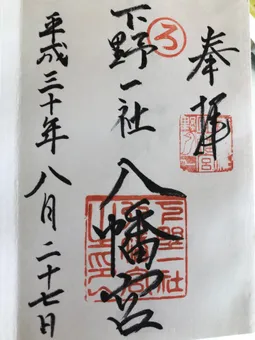 奉拝
下野一社
八幡宮
平成三十年八月二十七日